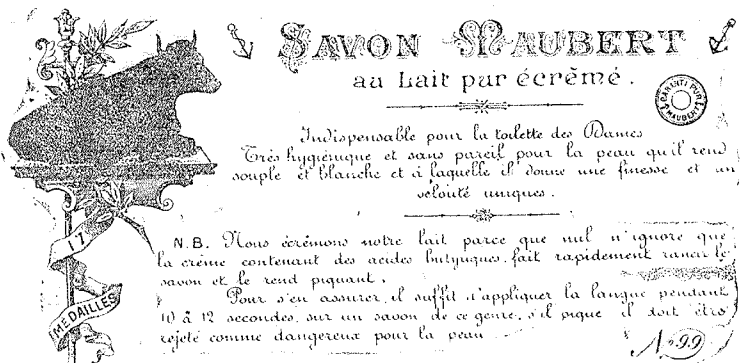 SAVON MAUBERT
au Lait pur écrêmé.
GARANTI PUR
J. MAUBERT
Indispensable pour la toilette des Dames
Très hygiénique et sans pareil pour la peau qu'il rend
souple et blanche et à laquelle il donne une finesse et un
velouté uniques.
N.B. Nous écrémons notre lait parce que nul n'ignore que
la crème contenant des acides butyriques, fait rapidement rancir le
savon et le rend piquant.
Pour s'en assurer, il suffit d'appliquer la langue pendant
10 à 12 secondes, sur un savon de ce genre, s'il pique il doit être
rejeté comme dangereux pour la peau
17
MÉDAILLES
No 99